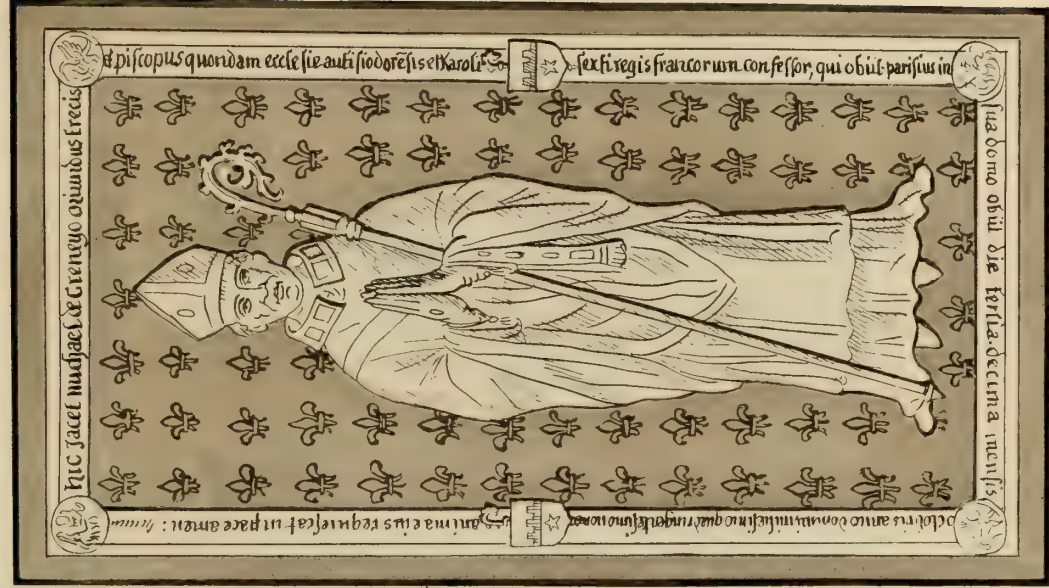 hic Jacet michael de Creneyo oriundus trecis
episcopus quondam ecclesie autisiodorẽsis et Karoli
sexti regis francorum confessor, qui obiit parisius in
sua domo obiit die tertia decima mensis
octobris anno domini millesimo quadringentesimo nono
anima eius requiescat in pace amen :